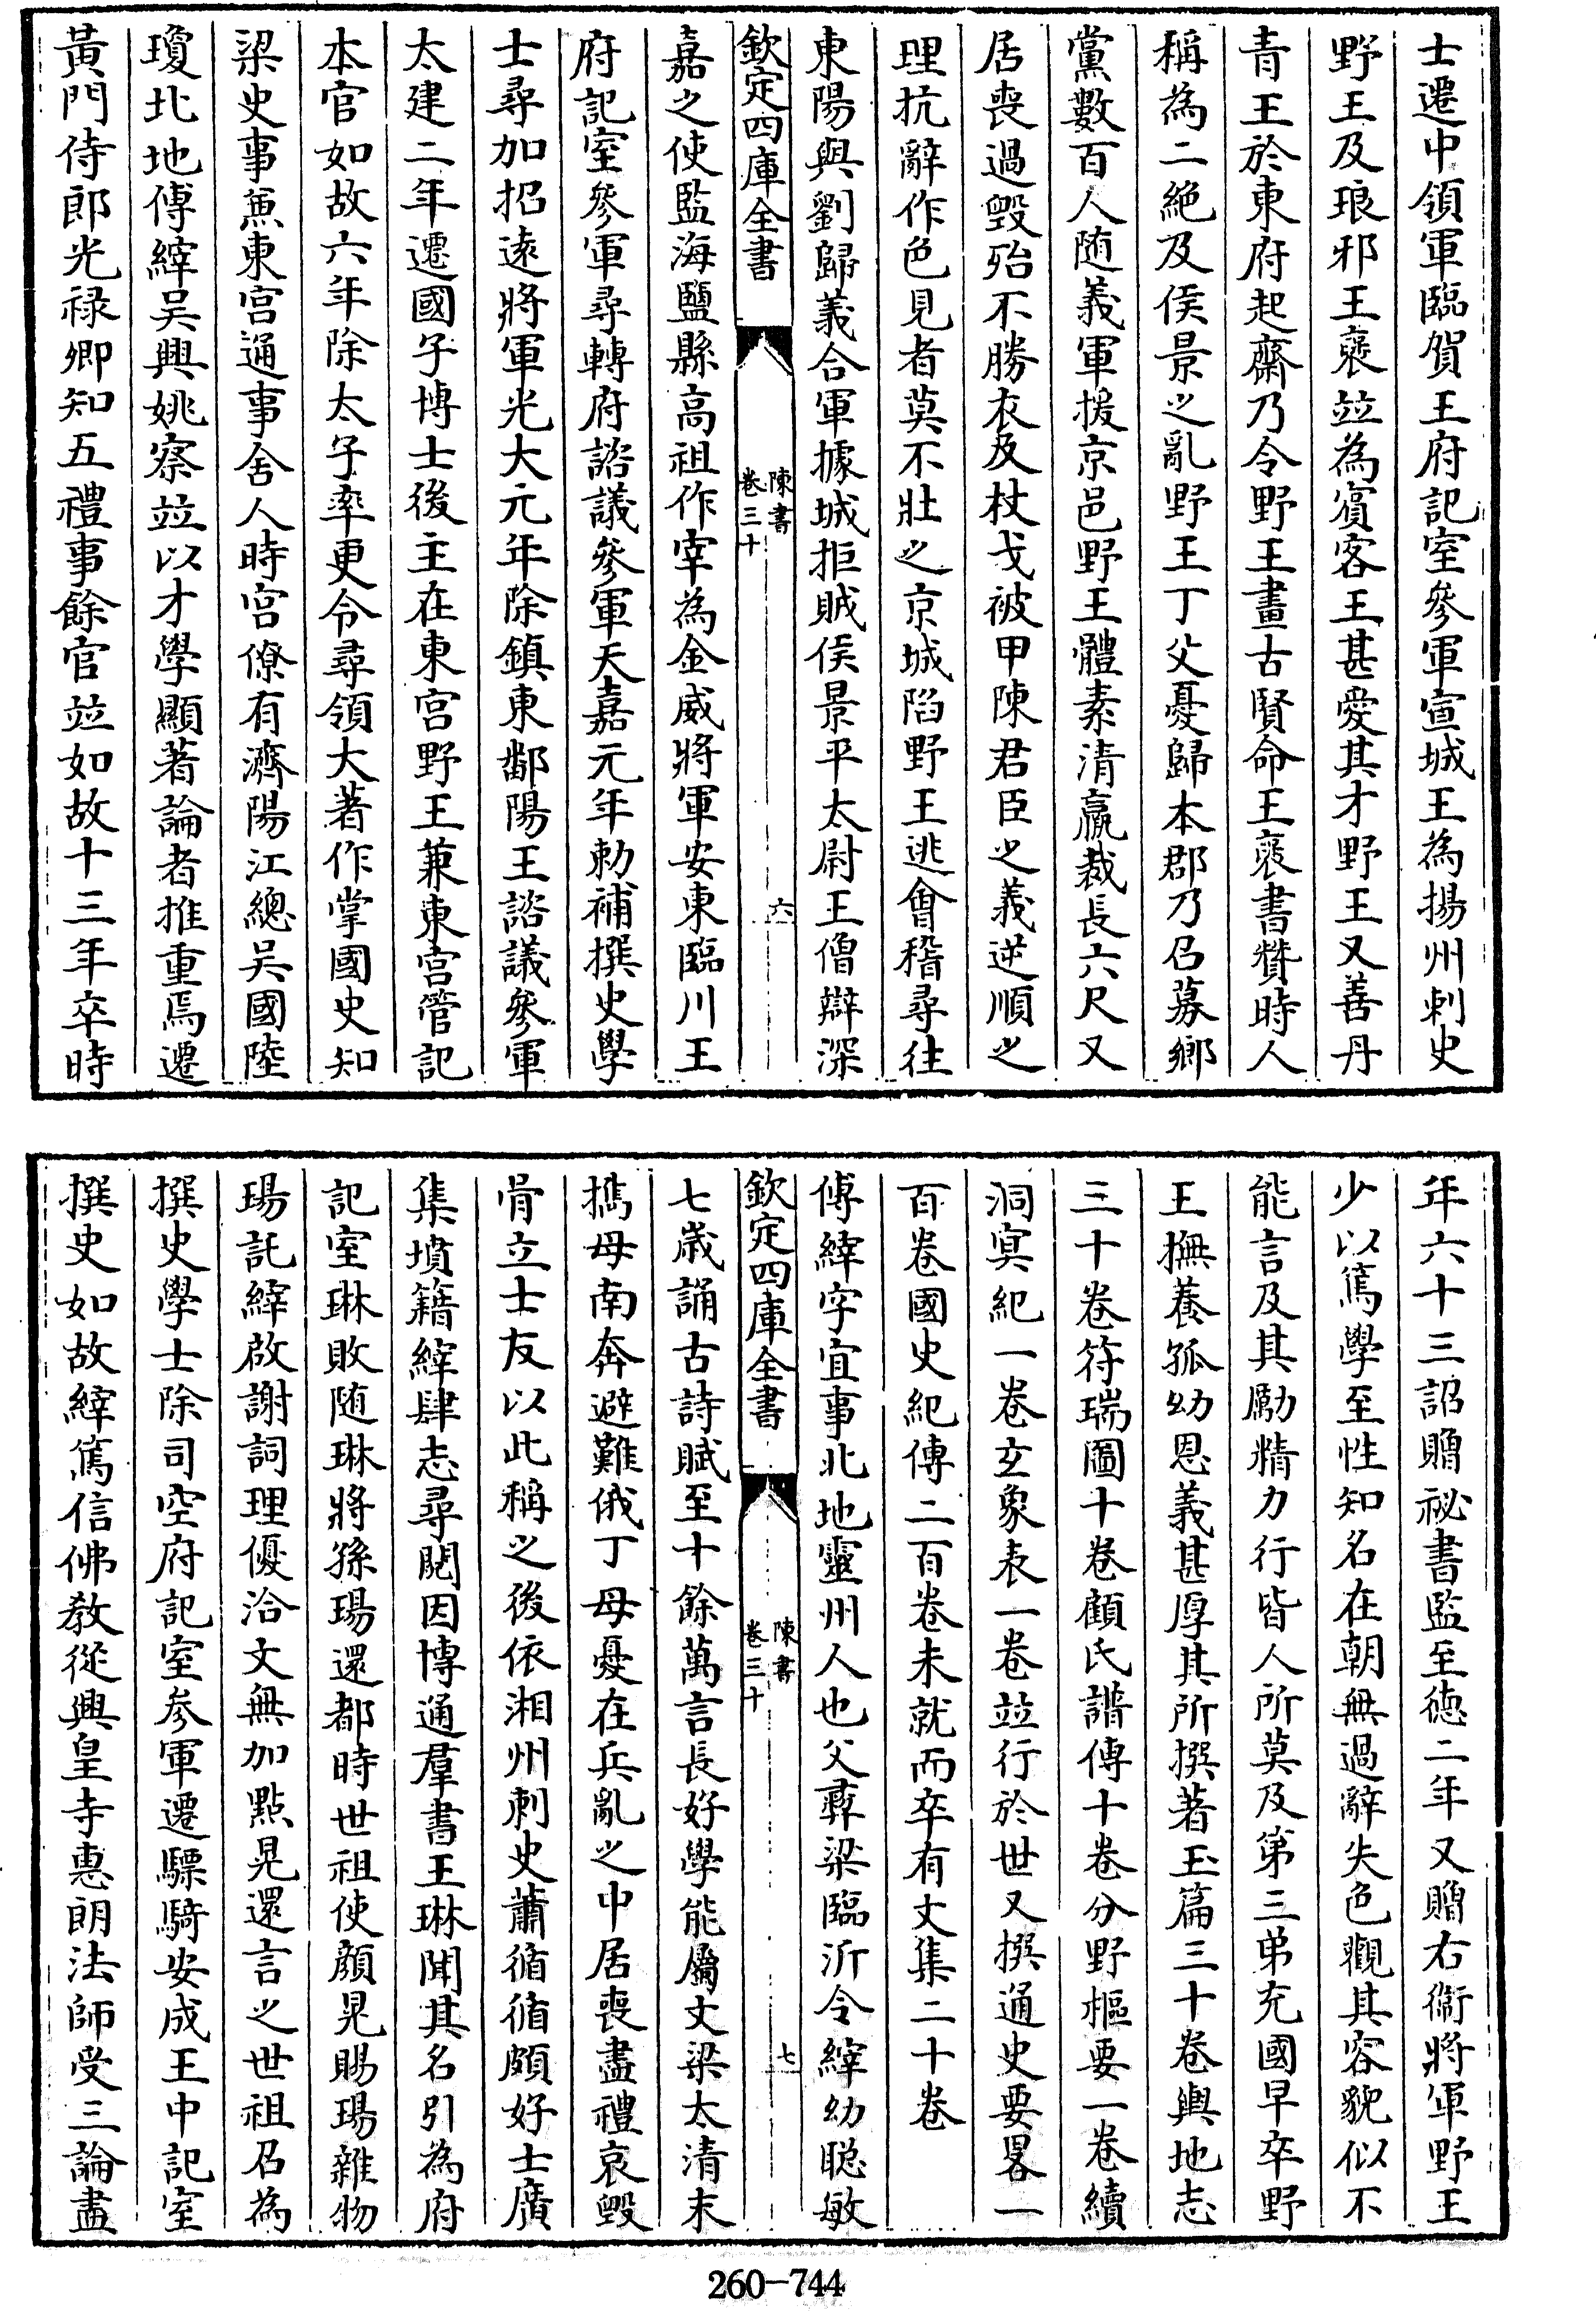 士遷中領軍臨賀王府記室參軍宣城王為揚州刺史
野王及琅邪王裒並為賓客王甚愛其才野王又善丹
青王於東府起齋乃令野王畫古賢命王裒書贊時人
稱為二絶及侯景之亂野王丁父憂歸本郡乃召募鄉
黨數百人随義軍援京邑野王體素清羸裁長六尺又
居喪過毁殆不勝衣及杖戈被甲陳君臣之義逆順之
理抗辭作色見者莫不壯之京城陷野王逃會稽尋往
東陽與劉歸義合軍據城拒賊侯景平太尉王僧辯深
欽定四庫全書
陳書
卷三十
六
嘉之使監海鹽縣高祖作宰為金威將軍安東臨川王
府記室參軍尋轉府諮議參軍天嘉元年勅補撰史學
士尋加招遠將軍光大元年除鎮東鄱陽王諮議參軍
太建二年遷國子博士後主在東宫野王兼東宫管記
本官如故六年除太子率更令尋領大著作掌國史知
梁史事兼東宫通事舍人時宫僚有濟陽江總吳國陸
瓊北地傅縡吳興姚察並以才學顯著論者推重焉遷
黃門侍郎光禄卿知五禮事餘官並如故十三年卒時
年六十三詔贈祕書監至德二年又贈右衞將軍野王
少以篤學至性知名在朝無過辭失色觀其容貌似不
能言及其勵精力行皆人所莫及第三弟充國早卒野
王撫養孤幼恩義甚厚其所撰著玉篇三十卷輿地志
三十卷符瑞圖十卷顧氏譜傳十卷分野樞要一卷續
洞冥紀一卷玄象表一卷並行於世又撰通史要畧一
百卷國史紀傳二百卷未就而卒有文集二十卷
傅縡字宜事北地靈州人也父彞梁臨沂令縡幼聰敏
欽定四庫全書
陳書
卷三十
七
七歲誦古詩賦至十餘萬言長好學能屬文梁太清末
攜母南奔避難俄丁母憂在兵亂之中居喪盡禮哀毁
骨立士友以此稱之後依湘州刺史蕭循循頗好士廣
集墳籍縡肆志尋閱因博通羣書王琳聞其名引為府
記室琳敗随琳將孫瑒還都時世祖使顔晃賜瑒雜物
瑒託縡啟謝詞理優洽文無加點晃還言之世祖召為
撰史學士除司空府記室參軍遷驃騎安成王中記室
撰史如故縡篤信佛教從興皇寺惠朗法師受三論盡
260-744